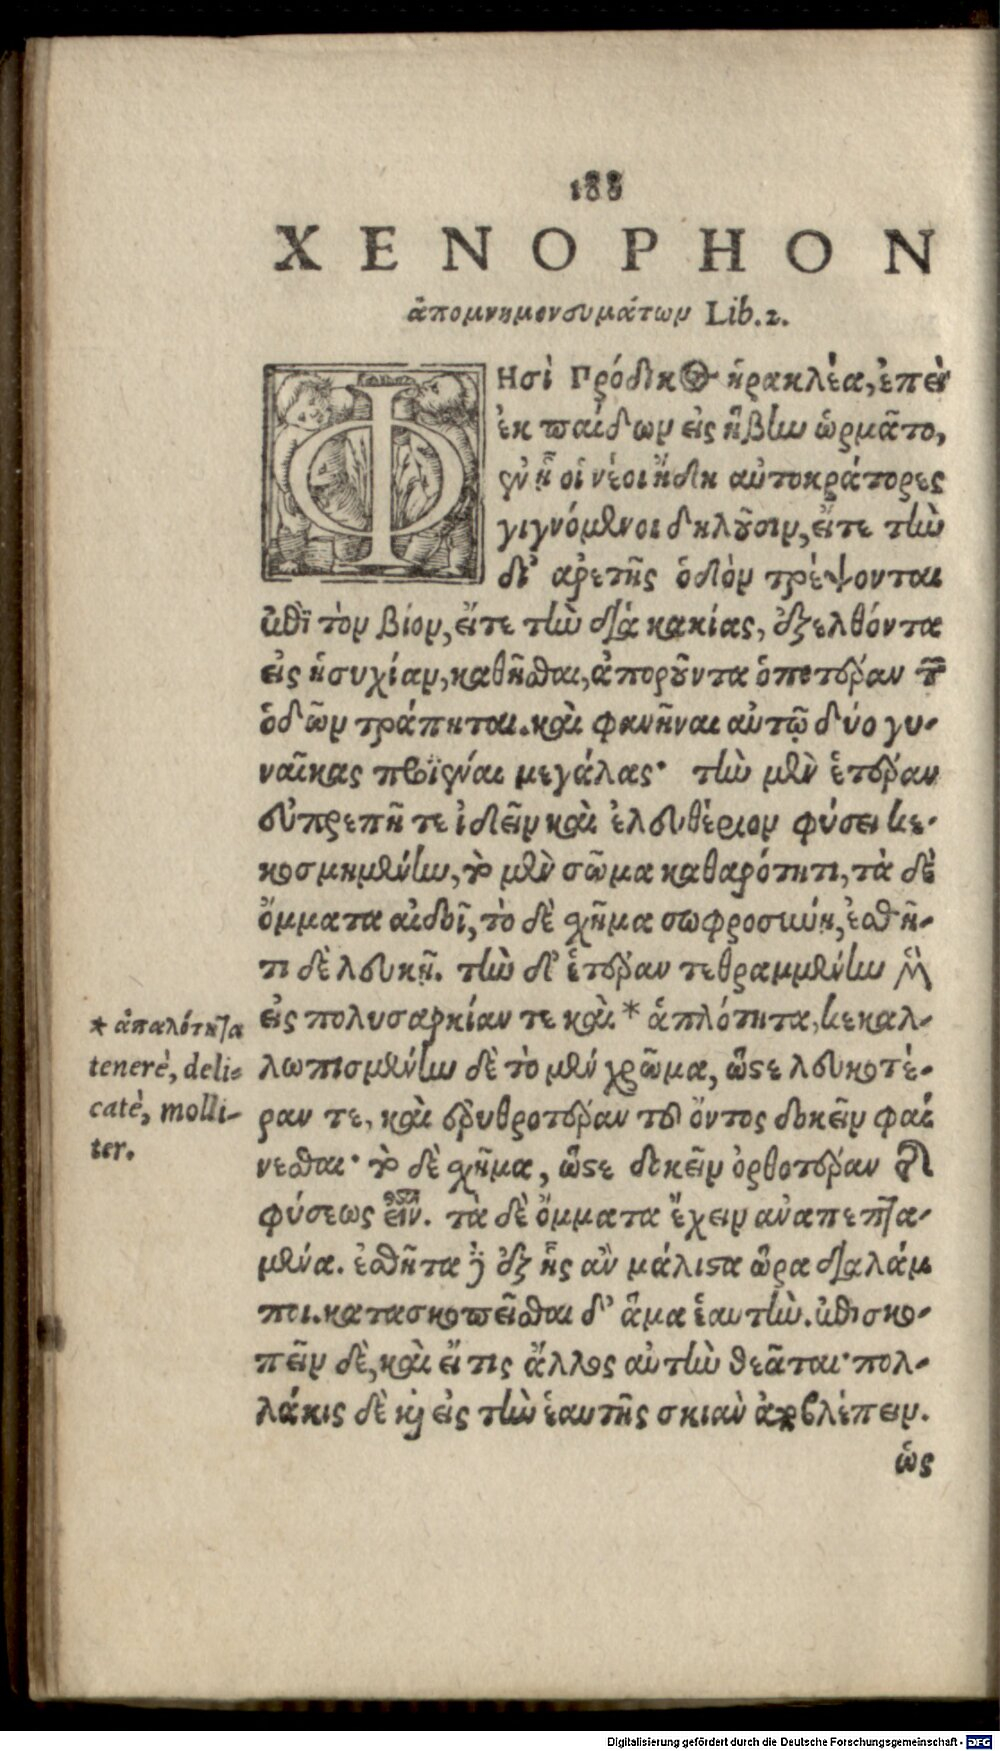 188
XENOPHON
ἀπομνημονευμάτων Lib. 2.
ΦΗσὶ Πρόδικος ἡρακλέα, ἐπεὶ
ἐκ παίδων εἰς ἥβην ὡρμᾶτο,
ἐν ᾗ οἱ νέοι ἤδη αὐτοκράτορες
γιγνόμενοι δηλοῦσιν, εἴτε τὴν
δι' ἀρετῆς ὁδὸν τρέψονται
ἐπὶ τὸν βίον, εἴτε τὴν διὰ κακίας, ἐξελθόντα
εἰς ἡσυχίαν, καθῆσθαι, ἀποροῦντα ὁποτέραν τῶν
ὁδῶν τράπηται. καὶ φανῆναι αὐτῷ δύο γυ-
ναῖκας προϊέναι μεγάλας· τὴν μὲν ἑτέραν
εὐπρεπῆ τε ἰδεῖν καὶ ἐλευθέριον φύσει κε-
κοσμημένην, τὸ μὲν σῶμα καθαρότητι, τὰ δὲ
ὄμματα αἰδοῖ, τὸ δὲ σχῆμα σωφροσύνῃ, ἐσθῆ-
τι δὲ λευκῇ. τὴν δ' ἑτέραν τεθραμμένην μὲν
εἰς πολυσαρκίαν τε καὶ * ἁπλότητα, κεκαλ-
λωπισμένην δὲ τὸ μὲν χρῶμα, ὥστε λευκοτέ-
ραν τε, καὶ ἐρυθροτέραν τοῦ ὄντος δοκεῖν φαί
νεσθαι· τὸ δὲ σχῆμα, ὥστε δοκεῖν ὀρθοτέραν τῆς
φύσεως εἶναι. τὰ δὲ ὄμματα ἔχειν ἀναπεπτα-
μένα. ἐσθῆτα δὲ ἐξ ἧς ἂν μάλιστα ὥρα διαλάμ
ποι. κατασκοπεῖσθαι δ' ἅμα ἑαυτὴν. ἐπισκο-
πεῖν δὲ, καὶ εἴ τις ἄλλος αὐτὴν θεᾶται· πολ-
λάκις δὲ καὶ εἰς τὴν ἑαυτῆς σκιὰν ἀποβλέπειν.
ὡς
* ἁπαλότητα
tenerè, deli-
catè, molli-
ter.
Digitalisierung gefördert durch die Deutsche Forschungsgemeinschaft - DFG